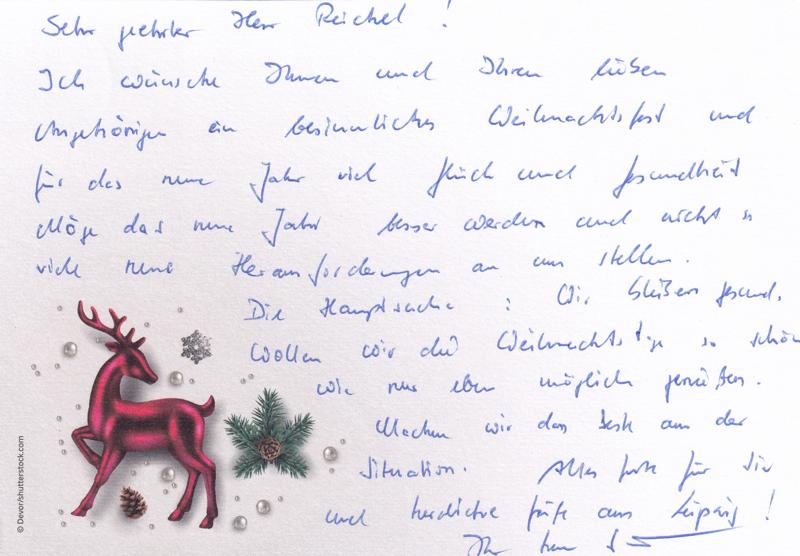 Sehr geehrter Herr Reichel!
Ich wünsche Ihnen und Ihren lieben
Angehörigen ein besinnliches Weihnachtsfest und
für das neue Jahr viel Glück und Gesundheit
Möge das neue Jahr besser werden und nicht so
viele neue Herausforderungen an uns stellen.
Die Hauptsache: Wir bleiben gesund.
Wollen wir die Weihnachtstage so schön
wie nur eben möglich genießen.
Machen wir das Beste aus der
Situation. Alles Gute für Sie
und herzliche Grüße aus Leipzig!
Ihr
© Devor/shutterstock.com